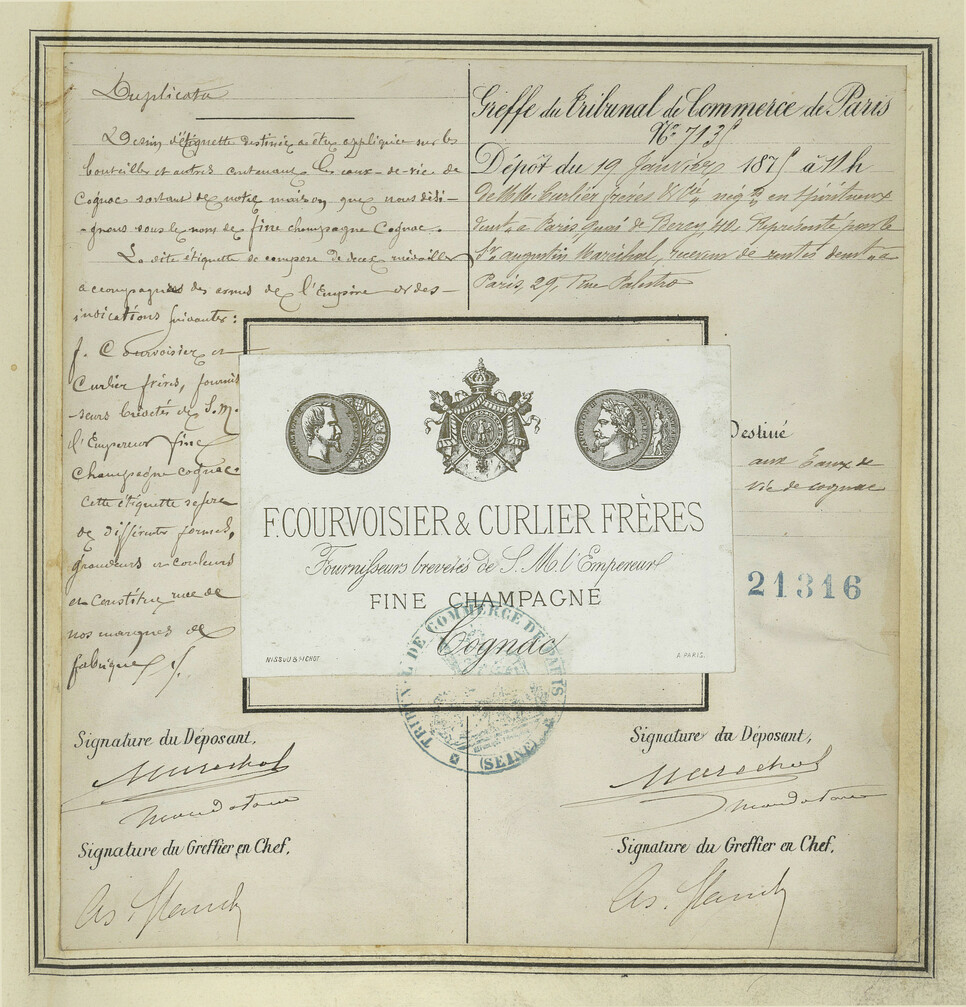 Duplicata
Dessin d'étiquette destinée à être appliquée sur les
bouteilles et autres contenant les eaux-de-vie de
Cognac sortant de notre maison que nous dési-
-gnons sous le nom de fine champagne Cognac.
La dite étiquette se compose de deux médailles
accompagnées des armes de l'Empire et des
indications suivantes:
F. Courvoisier et
Curlier frères, fournis
-seurs brevetés de S. M.
l'Empereur fine
Champagne cognac.
Cette étiquette
de différentes formes,
grandeurs et couleurs
en constitue une de
nos marques de
fabrique
Greffe du Tribunal de Commerce de Paris
No. 713
Dépôt du 19 Janvier 187 à 11 h
de MM. Curlier frères & Cie négts en spiritueux
demt à Paris, Quai de Bercy 40, Représenté par le
Sr. augustin Maréchal, receveur de rentes demt à
Paris, 29, Rue Palestro
Destiné
aux Eaux de
Vie de cognac
21316
NAPOLEON III
F. COURVOISIER & CURLIER FRÈRES
Fournisseurs brevetés de S. M. l'Empereur
FINE CHAMPAGNE
Cognac
NISSOU BICHOT
A PARIS.
TRIBUNAL DE COMMERCE DE PARIS
(SEINE)
Signature du Déposant,
Marechal
mandataire
Signature du Greffier en Chef,
Signature du Déposant,
Marechal
mandataire
Signature du Greffier en Chef,